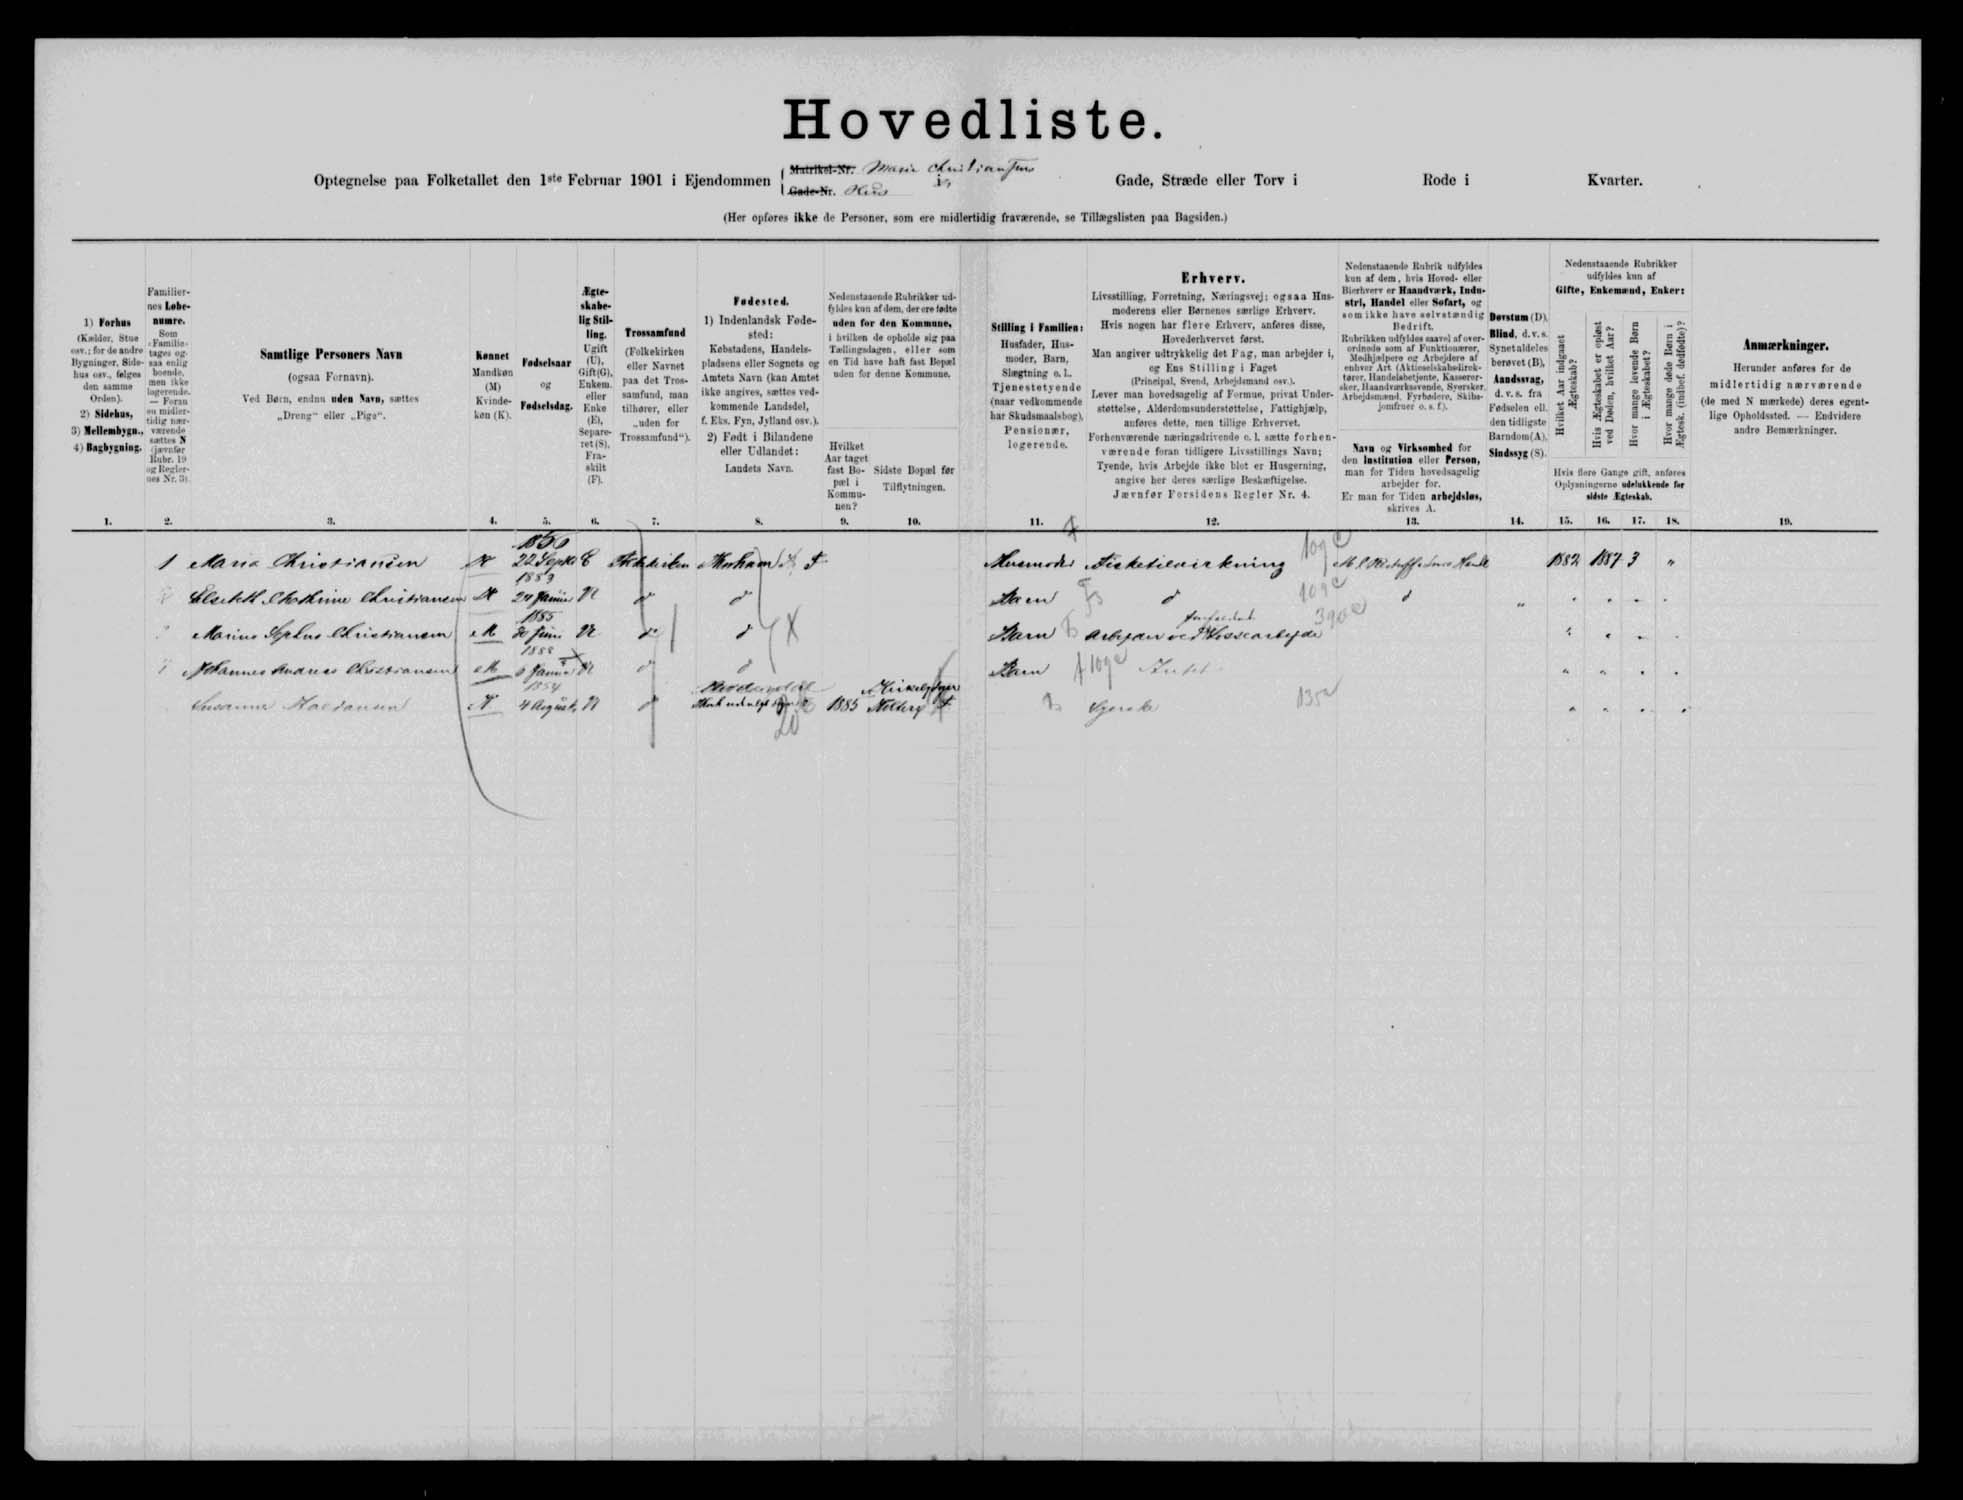 Hovedliste.
Optegnelse paa Folketallet den 1ste Februar 1901 i Ejendommen
Matrikel-Nr. Maria Christiansens
Gade-Nr. Hus i
Gade, Stræde eller Torv i Rode i Kvarter.
(Her opføres ikke de Personer, som ere midlertidig fraværende, se Tillægslisten paa Bagsiden.)
1) Forhus
(Kælder, Stue
osv.; for de andre
Bygninger, Side-
hus osv., følges
den samme
Orden).
2) Sidehus,
3) Mellembygn.,
4) Bagbygning.
Familier-
nes Løbe-
numre.
Som
Familie
tages og-
saa enlig
boende,
men ikke
logerende.
— Foran
en midler-
tidig nær-
værende
sættes N
(jævnfør
Rubr. 19
og Regler-
nes Nr. 3).
Samtlige Personers Navn
(ogsaa Fornavn).
Ved Børn, endnu uden Navn, sættes
„Dreng“ eller „Pige“.
Kønnet
Mandkøn
(M)
Kvinde-
køn (K).
Fødselsaar
og
Fødselsdag.
Ægte-
skabe-
lig Stil-
ling.
Ugift
(U),
Gift(G),
Enkem.
eller
Enke
(E),
Separe-
ret (S),
Fra-
skilt
(F).
Trossamfund
(Folkekirken
eller Navnet
paa det Tros-
samfund, man
tilhører, eller
„uden for
Trossamfund“).
Fødested.
1) Indenlandsk Føde-
sted:
Købstadens, Handels-
pladsens eller Sognets og
Amtets Navn (kan Amtet
ikke angives, sættes ved-
kommende Landsdel,
f. Eks. Fyn, Jylland osv.).
2) Født i Bilandene
eller Udlandet:
Landets Navn.
Nedenstaaende Rubrikker ud-
fyldes kun af dem, der ere fødte
uden for den Kommune,
i hvilken de opholde sig paa
Tællingsdagen, eller som
en Tid have haft fast Bopæl
uden for denne Kommune.
Hvilket
Aar taget
fast Bo-
pæl i
Kommu-
nen?
Sidste Bopæl før
Tilflytningen.
Stilling i Familien:
Husfader, Hus-
moder, Barn,
Slægtning o. l.
Tjenestetyende
(naar vedkommende
har Skudsmaalsbog),
Pensionær,
logerende.
Erhverv.
Livsstilling, Forretning, Næringsvej; ogsaa Hus-
moderens eller Børnenes særlige Erhverv.
Hvis nogen har flere Erhverv, anføres disse,
Hovederhvervet først.
Man angiver udtrykkelig det Fag, man arbejder i,
og Ens Stilling i Faget
(Principal, Svend, Arbejdsmand osv.).
Lever man hovedsagelig af Formue, privat Under-
støttelse, Alderdomsunderstøttelse, Fattighjælp,
anføres dette, men tillige Erhvervet.
Forhenværende næringsdrivende o. l. sætte forhen-
værende foran tidligere Livsstillings Navn;
Tyende, hvis Arbejde ikke blot er Husgerning,
angive her deres særlige Beskæftigelse.
Jævnfør Forsidens Regler Nr. 4.
Nedenstaaende Rubrik udfyldes
kun af dem, hvis Hoved- eller
Bierhverv er Haandværk, Indu-
stri, Handel eller Søfart, og
som ikke have selvstændig
Bedrift.
Rubrikken udfyldes saavel af over-
ordnede som af Funktionærer,
Medhjælpere og Arbejdere af
enhver Art (Aktieselskabsdirek-
tører, Handelsbetjente, Kasserer-
sker, Haandværkssvende, Syersker,
Arbejdsmænd, Fyrbødere, Skibs-
jomfruer o. s. f.).
Navn og Virksomhed for
den Institution eller Person,
man for Tiden hovedsagelig
arbejder for.
Er man for Tiden arbejdsløs,
skrives A.
Døvstum (D),
Blind, d. v. s.
Synet aldeles
berøvet (B),
Aandssvag,
d. v. s. fra
Fødselen ell.
den tidligste
Barndom (A),
Sindssyg (S).
Nedenstaaende Rubrikker
udfyldes kun af
Gifte, Enkemænd, Enker:
Hvilket Aar indgaaet
Ægteskab?
Hvis Ægteskabet er opløst
ved Døden, hvilket Aar?
Hvor mange levende Børn
i Ægteskabet?
Hvor mange døde Børn i
Ægtesk. (indbef. dødfødte)?
Hvis flere Gange gift, anføres
Oplysningerne udelukkende for
sidste Ægteskab.
Anmærkninger.
Herunder anføres for de
midlertidig nærværende
(de med N mærkede) deres egent-
lige Opholdssted. — Endvidere
andre Bemærkninger.
1. 2. 3. 4. 5. 6. 7. 8. 9. 10. 11. 12. 13. 14. 15. 16. 17. 18. 19.
1850
1 Maria Christiansen K 22 Septbr E Folkekirken Thorshavn F Husmoder Fisketilvirkning 109c 1882 1887 3 "
1883
Elsebeth Cathrine Christiansen K 24 Januar U d d Barn d 109c d
1885
Marius Sophus Christiansen M 30 Juni U d d Barn Arbejder ved Fossearbejde 390c
1888
Johannes Andreas Christiansen M 6 Januar U d d Barn 109c Intet
1854
Susanne Joensen K 4 August U d 1885 F Syerske 135a